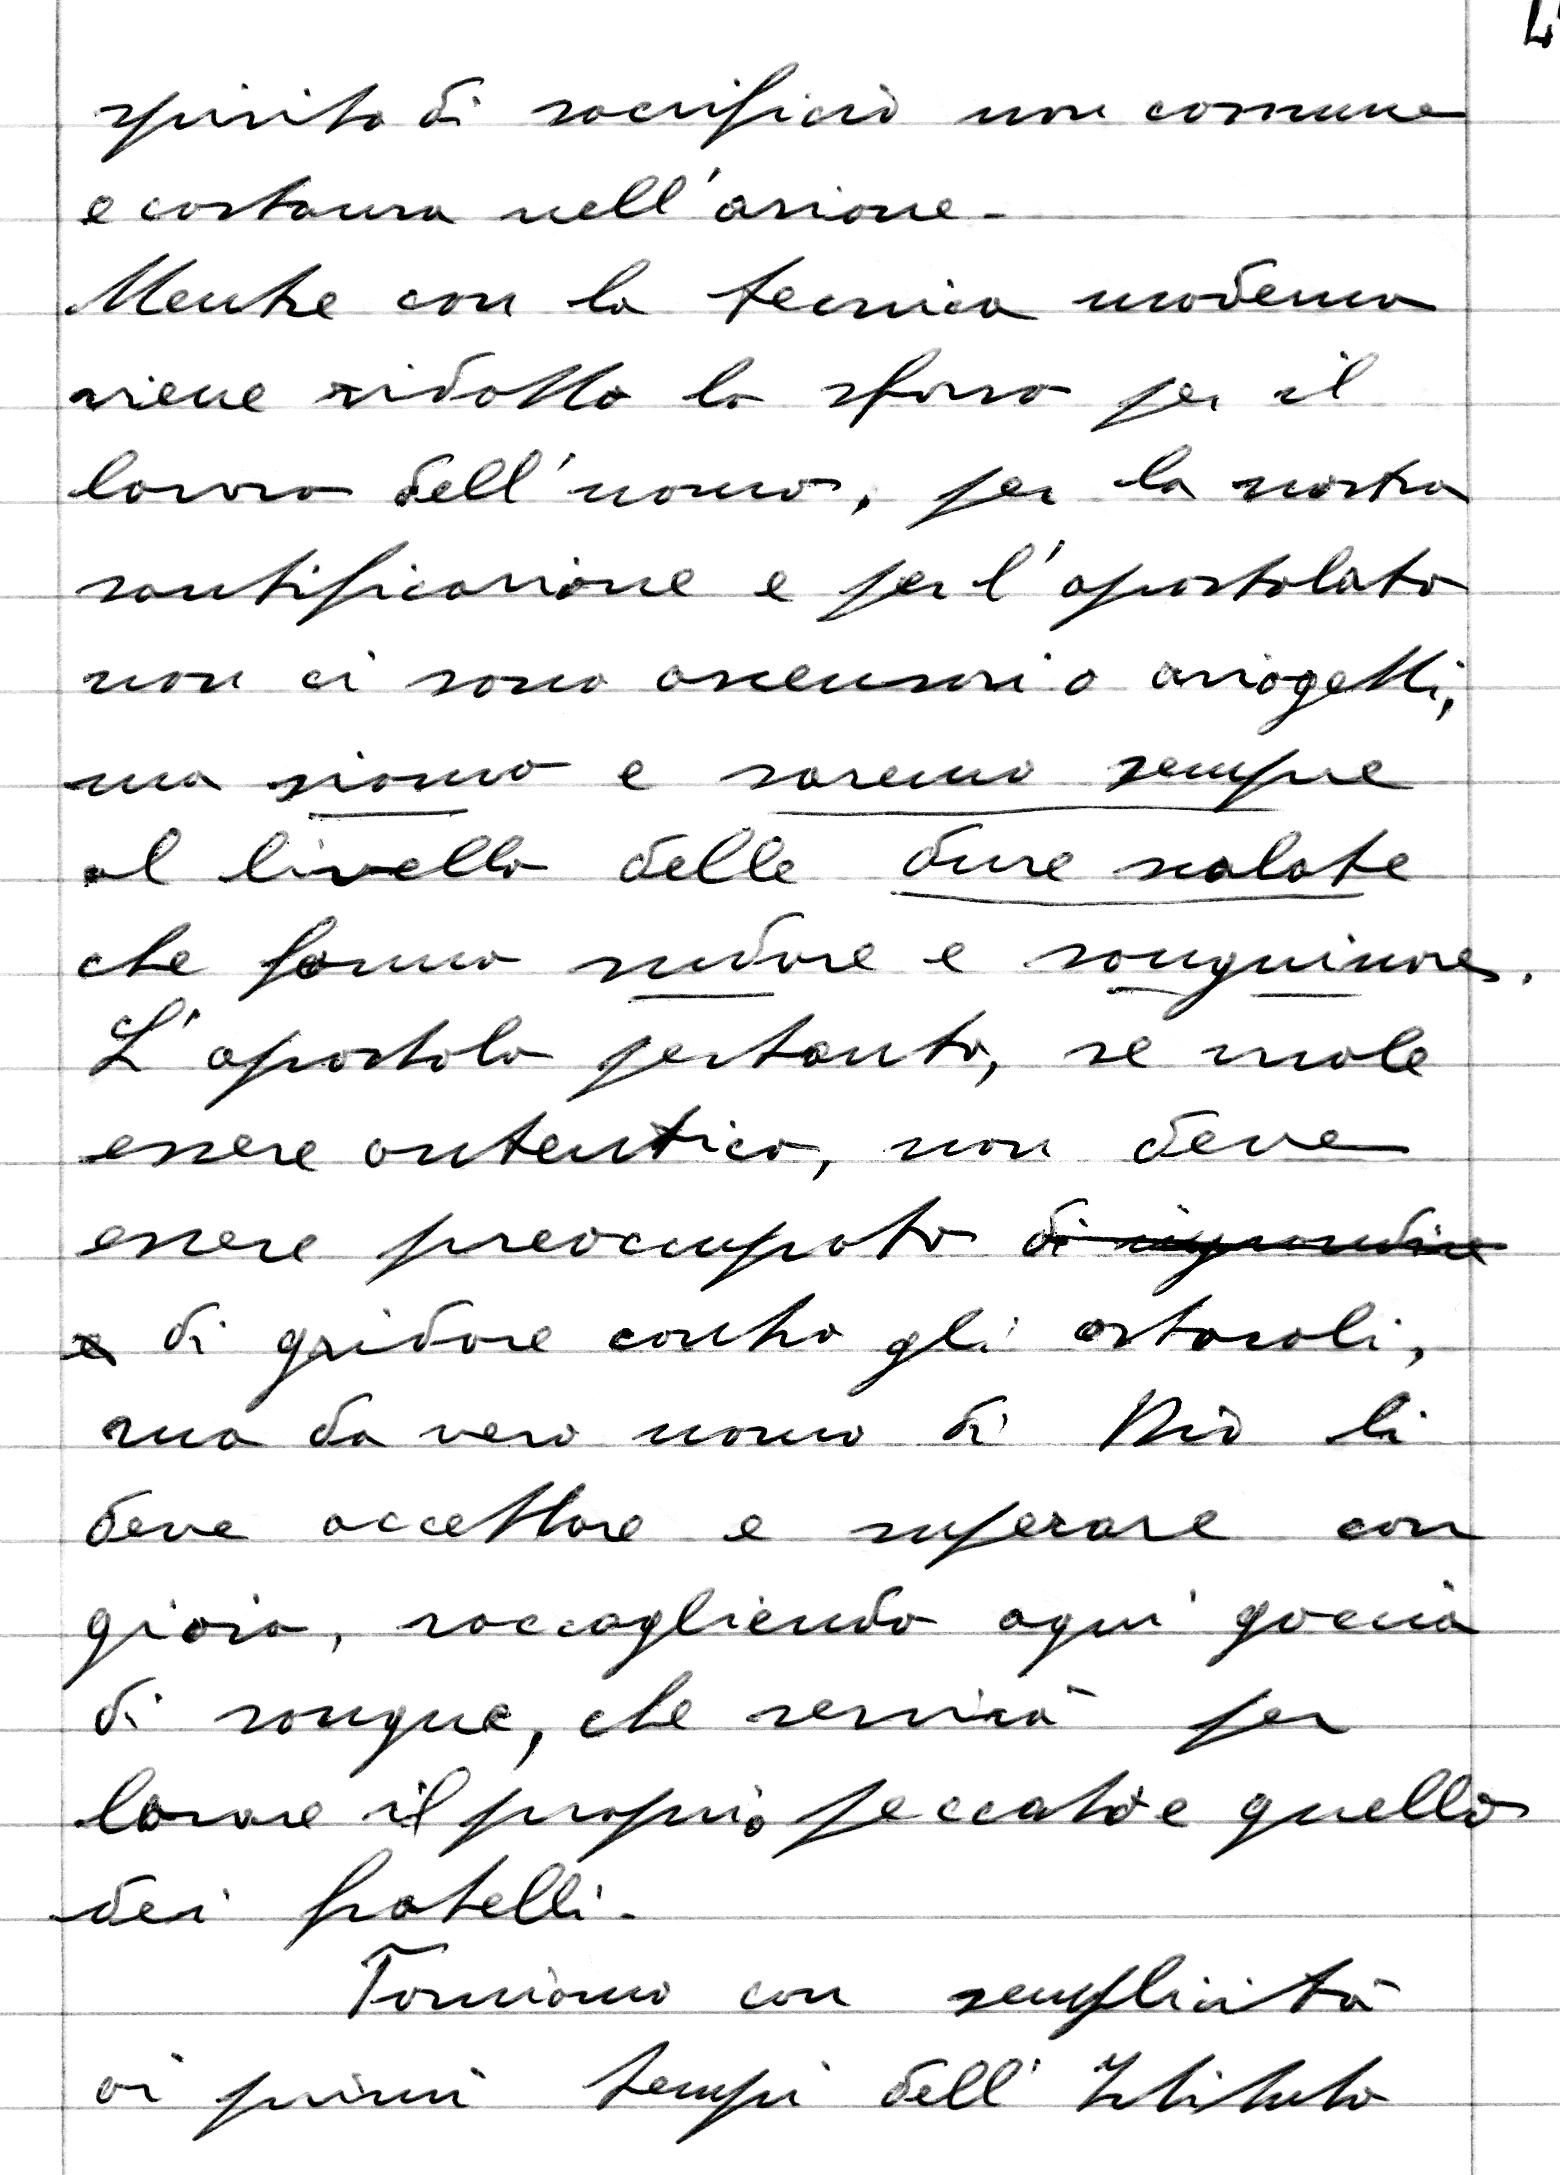 spirito di sacrificio non comune
e costanza nell'azione.
Mentre con la tecnica moderna
viene ridotto lo sforzo per il
lavoro dell'uomo, per la nostra
santificazione e per l'apostolato
non ci sono ascensori o aviogetti,
ma siamo e saremo sempre
al livello delle dure scalate
che fanno sudare e sanguinare.
L'apostolo pertanto, se vuole
essere autentico, non deve
essere preoccupato di ingrandire
e di gridare contro gli ostacoli,
ma da vero uomo di Dio li
deve accettare e superare con
gioia, raccogliendo ogni goccia
di sangue, che servirà per
lavare il proprio peccato e quello
dei fratelli.
Torniamo con semplicità
ai primi tempi dell'Istituto